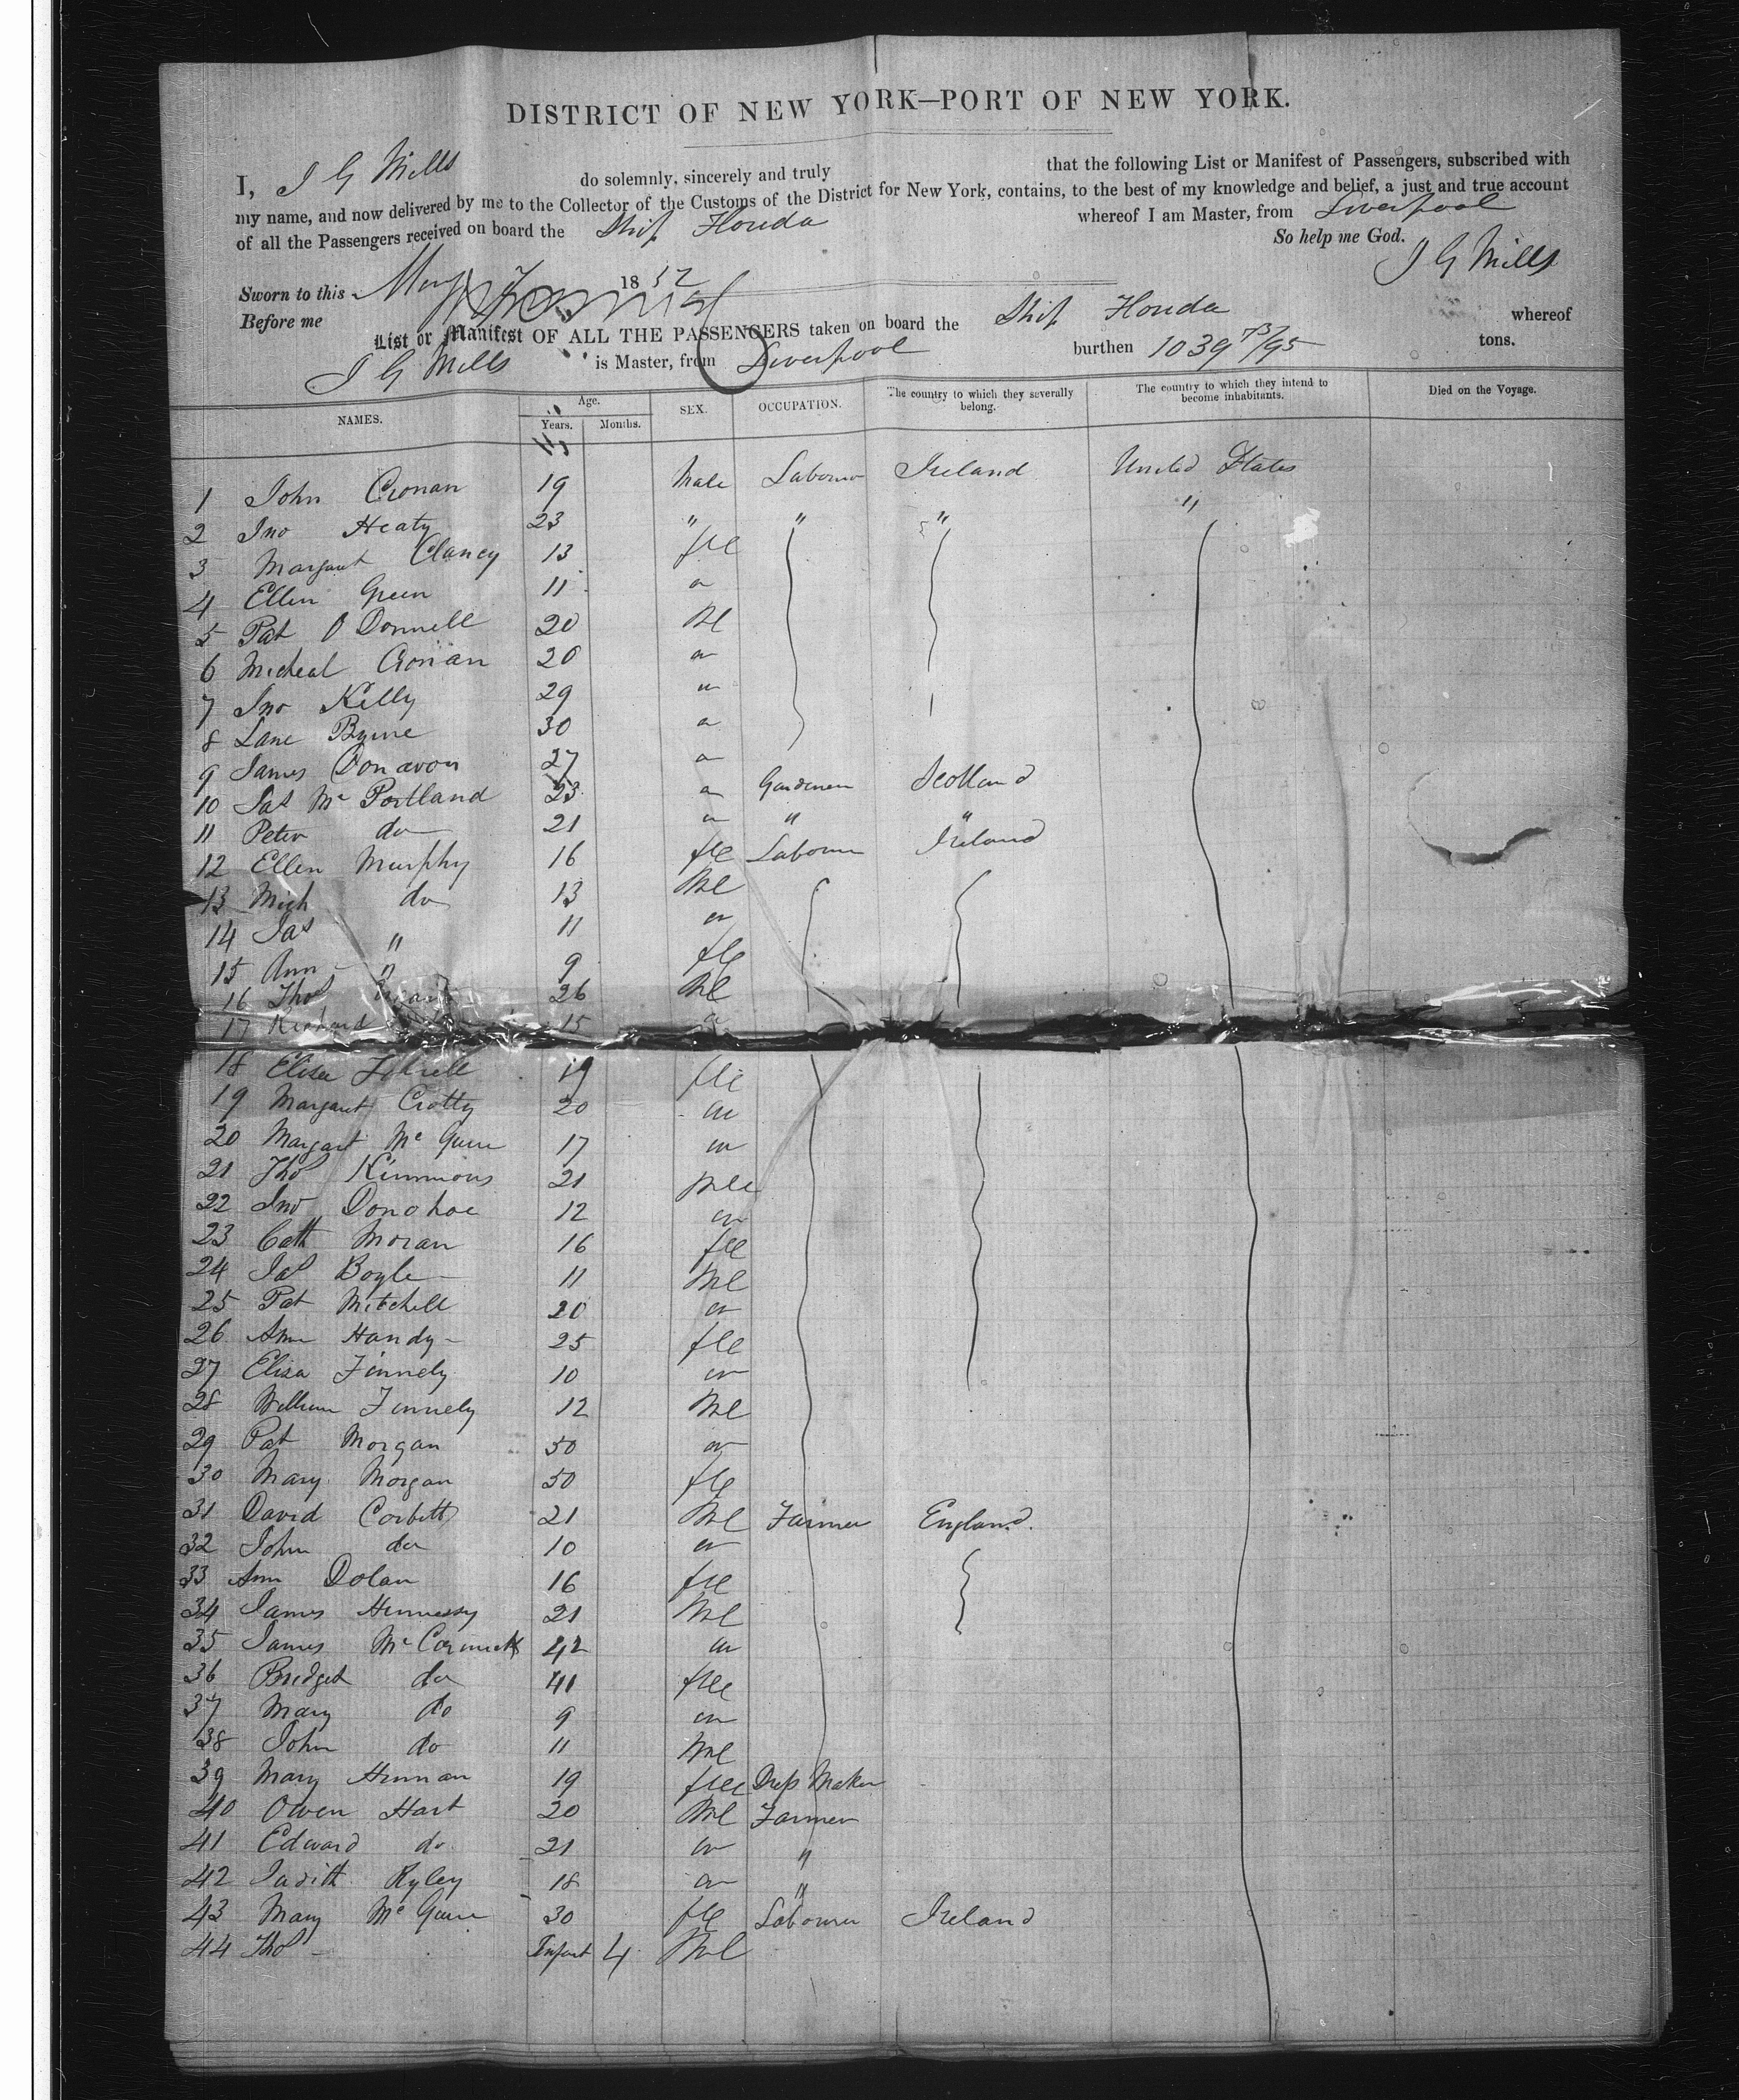 DISTRICT OF NEW YORK—PORT OF NEW YORK.
I, J G Mills do solemnly, sincerely and truly that the following List or Manifest of Passengers, subscribed with
my name, and now delivered by me to the Collector of the Customs of the District for New York, contains, to the best of my knowledge and belief, a just and true account
of all the Passengers received on board the Ship Houda whereof I am Master, from Liverpool
So help me God.
J G Mills
Sworn to this May 1852
Before me
List or Manifest OF ALL THE PASSENGERS taken on board the Ship Houda whereof
J G Mills is Master, from Liverpool burthen 1039 73/95 tons.
NAMES. Age. Years. Months. SEX. OCCUPATION. The country to which they severally belong. The country to which they intend to become inhabitants. Died on the Voyage.
1 John Cronan 19 Male Labourer Ireland United States
2 Jno Heaty 23 " " " "
3 Margaret Clancy 13 fle
4 Ellen Green 11 "
5 Pat O Donnell 20 Ml
6 Micheal Cronan 20 "
7 Jno Kelly 29 "
8 Lane Byrne 30 "
9 James Donavon 27 "
10 Jas Mc Portland 23 " Gardener Scotland
11 Peter do 21 " " "
12 Ellen Murphy 16 fle Labourer Ireland
13 Mich do 13 Ml
14 Jas " 11 "
15 Ann " 9 fle
16 Thos 26 Ml
17 Richard 15 "
18 Eliza 19 fle
19 Margaret Crotty 20 "
20 Margart Mc Guire 17 "
21 Thos Kimmons 21 Mle
22 Jno Donohoe 12 "
23 Cath Moran 16 fle
24 Jas Boyle 11 Ml
25 Pat Mitchell 20 "
26 Ann Handy 25 fle
27 Eliza Finnely 10 "
28 William Finnely 12 Ml
29 Pat Morgan 50 "
30 Mary Morgan 50 fle
31 David Corbett 21 Ml Farmer England.
32 John do 10 "
33 Ann Dolan 16 fle
34 James Hennessy 21 Ml
35 James McCormick 42 "
36 Bridget do 41 fle
37 Mary do 9 "
38 John do 11 Ml
39 Mary Hernan 19 fle Dress Maker
40 Owen Hart 20 Ml Farmer
41 Edward do 21 " "
42 Judith Ryley 18 " "
43 Mary Mc Guire 30 fle Labourer Ireland
44 Thos Infant 4 Ml